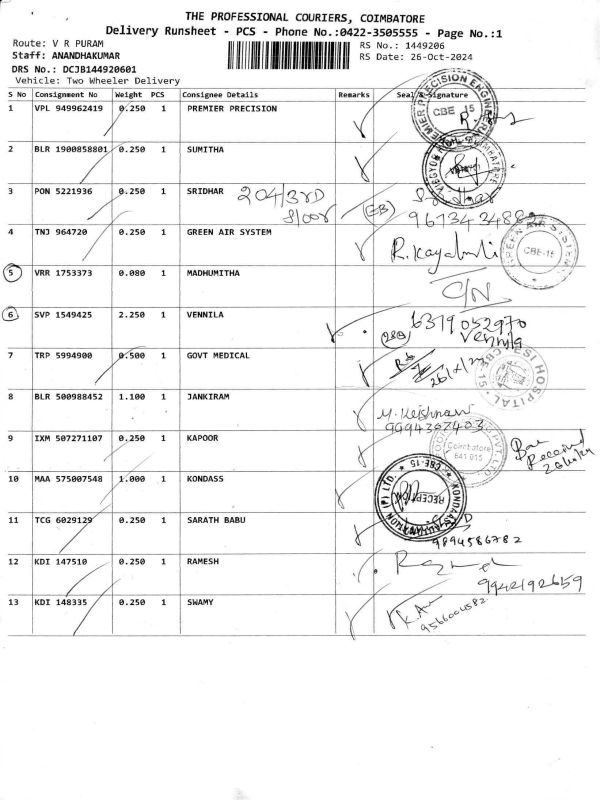 THE PROFESSIONAL COURIERS, COIMBATORE
Delivery Runsheet - PCS - Phone No.:0422-3505555 - Page No.:1
Route: V R PURAM
RS No.: 1449206
Staff: ANANDHAKUMAR
RS Date: 26-Oct-2024
DRS No.: DCJB144920601
Vehicle: Two Wheeler Delivery
S No Consignment No Weight PCS Consignee Details Remarks Seal & Signature
1 VPL 949962419 0.250 1 PREMIER PRECISION
PREMIER PRECISION ENGINEER CBE 15
2 BLR 1900858801 0.250 1 SUMITHA
3 PON 5221936 0.250 1 SRIDHAR 204/3RD
floor (EB)
4 TNJ 964720 0.250 1 GREEN AIR SYSTEM R. Kayalvili
GREEN AIR SYSTEMS CBE-15
5 VRR 1753373 0.080 1 MADHUMITHA C/N
6 SVP 1549425 2.250 1 VENNILA 6379052970
Vennila
7 TRP 5994900 0.500 1 GOVT MEDICAL
ESI HOSPITAL CBE 15
8 BLR 500988452 1.100 1 JANKIRAM M. Krishnan
9994307403
9 IXM 507271107 0.250 1 KAPOOR
PVT. LTD. Coimbatore 641 015
Received
10 MAA 575007548 1.000 1 KONDASS
KONDAAS AUTOMATION (P) LTD. CBE-15 RECEPTION
11 TCG 6029129 0.250 1 SARATH BABU
9894586782
12 KDI 147510 0.250 1 RAMESH
9942192659
13 KDI 148335 0.250 1 SWAMY
9566004582